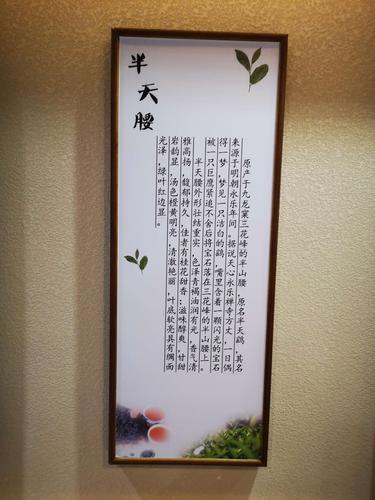 半天腰
原产于九龙窠三花峰的半山腰，原名半天鹞，其名
来源于明朝永乐年间。据说天心永乐禅寺方丈，一日偶
得一梦，梦见一只洁白的鹞，嘴里含着一颗闪光的宝石
被一只巨鹰紧追不舍后将宝石落在三花峰的半山腰上。
半天腰外形壮结重实，色泽青褐油润有光，香气清
雅高扬，馥郁持久，佳者有桂花甜香；滋味醇爽，甘甜
岩韵显，汤色橙黄明亮，清澈艳丽，叶底软亮具有绸面
光泽，绿叶红边显。